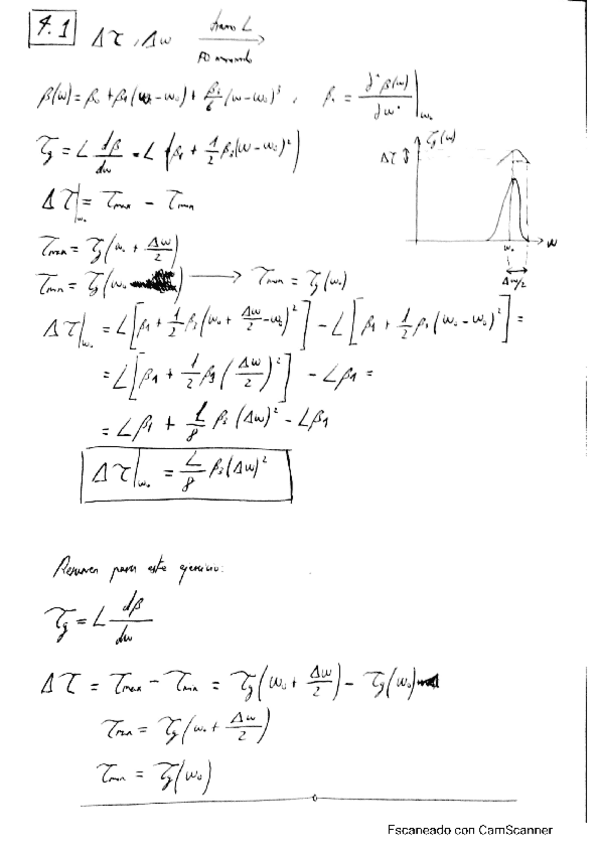 4.1 Δτ, Δω tramo L
β(ω) = β₀ + β₁(ω-ω₀) + β₃/6 (ω-ω₀)³, βᵢ = ∂ⁱβ(ω)/∂ωⁱ |ω₀
τg = L dβ/dω = L (β₁ + 1/2 β₃(ω-ω₀)²)
Δτ τg(ω)
ω₀ ω
Δω/2
Δτ|ω₀ = τmax - τmin
τmax = τg(ω₀ + Δω/2)
τmin = τg(ω₀ ) → τmin = τg(ω₀)
Δτ|ω₀ = L[β₁ + 1/2 β₃(ω₀ + Δω/2 - ω₀)²] - L[β₁ + 1/2 β₃(ω₀-ω₀)²] =
= L[β₁ + 1/2 β₃(Δω/2)²] - Lβ₁ =
= Lβ₁ + L/8 β₃(Δω)² - Lβ₁
Δτ|ω₀ = L/8 β₃(Δω)²
Resumen para este ejercicio:
τg = L dβ/dω
Δτ = τmax - τmin = τg(ω₀ + Δω/2) - τg(ω₀)
τmax = τg(ω₀ + Δω/2)
τmin = τg(ω₀)
Escaneado con CamScanner